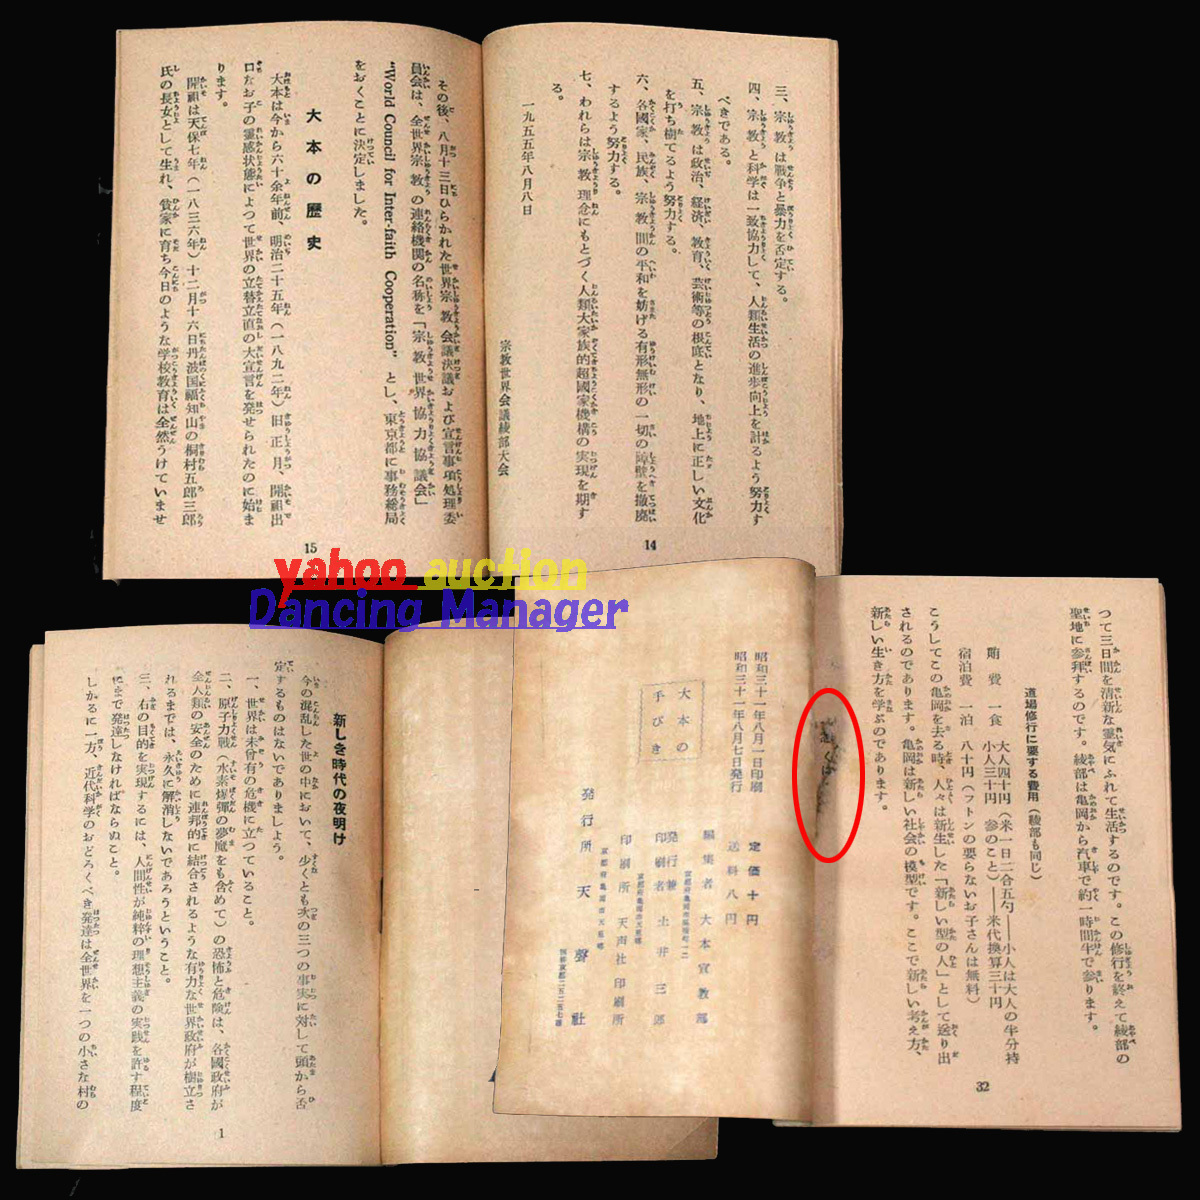 三、宗教は戦争と暴力を否定する。
四、宗教と科学は一致協力して、人類生活の進歩向上を計るよう努力す
べきである。
五、宗教は政治、経済、教育、芸術等の根底となり、地上に正しい文化
を打ち樹てるよう努力する。
六、各國家、民族、宗教間の平和を妨げる有形無形の一切の障壁を撤廃
するよう努力する。
七、われらは宗教理念にもとづく人類大家族的超國家機構の実現を期す
る。
一九五五年八月八日
宗教世界会議綾部大会
14
その後、八月十三日ひらかれた世界宗教会議決議および宣言事項処理委
員会は、全世界宗教の連絡機関の名称を「宗教世界協力協議会」
"World Council for Inter-faith Cooperation" とし、東京都に事務総局
をおくことに決定しました。
大本の歴史
大本は今から六十余年前、明治二十五年(一八九二年)旧正月、開祖出
口なお子の霊感状態によつて世界の立替立直の大宣言を発せられたのに始ま
ります。
開祖は天保七年(一八三六年)十二月十六日丹波国福知山の桐村五郎三郎
氏の長女として生れ、貧家に育ち今日のような学校教育は全然うけていませ
15
yahoo auction
Dancing Manager
つて三日間を清新な霊気にふれて生活するのです。この修行を終えて綾部の
聖地に参拝するのです。綾部は亀岡から汽車で約一時間半で参ります。
道場修行に要する費用(綾部も同じ)
賄費 一食 大人四十円(米一日二合五勺——小人は大人の半分持
小人三十円 参のこと)——米代換算三十円
宿泊費 一泊 八十円(フトンの要らないお子さんは無料)
こうしてこの亀岡を去る時、人々は新生した「新しい型の人」として送り出
されるのであります。亀岡は新しい社会の模型です。ここで新しい考え方、
新しい生き方を学ぶのであります。
32
昭和三十一年八月一日印刷
昭和三十一年八月七日発行
大本の
手びき
定価十円
送料八円
編集者 大本宣教部
発行兼
印刷者 土井三郎
印刷所 天声社印刷所
発行所 天聲社
新しき時代の夜明け
今の混乱した世の中において、少くとも次の三つの事実に対して頭から否
定するものはないでありましよう。
一、世界は未曾有の危機に立つていること。
二、原子力戦(水素爆弾の夢魔をも含めて)の恐怖と危険は、各國政府が
全人類の安全のために連邦的に結合されるような有力な世界政府が樹立さ
れるまでは、永久に解消しないであろうということ。
三、右の目的を実現するには、人間性が純粋の理想主義の実践を許す程度
にまで発達しなければならぬこと。
しかるに一方、近代科学のおどろくべき発達は全世界を一つの小さな村の
1